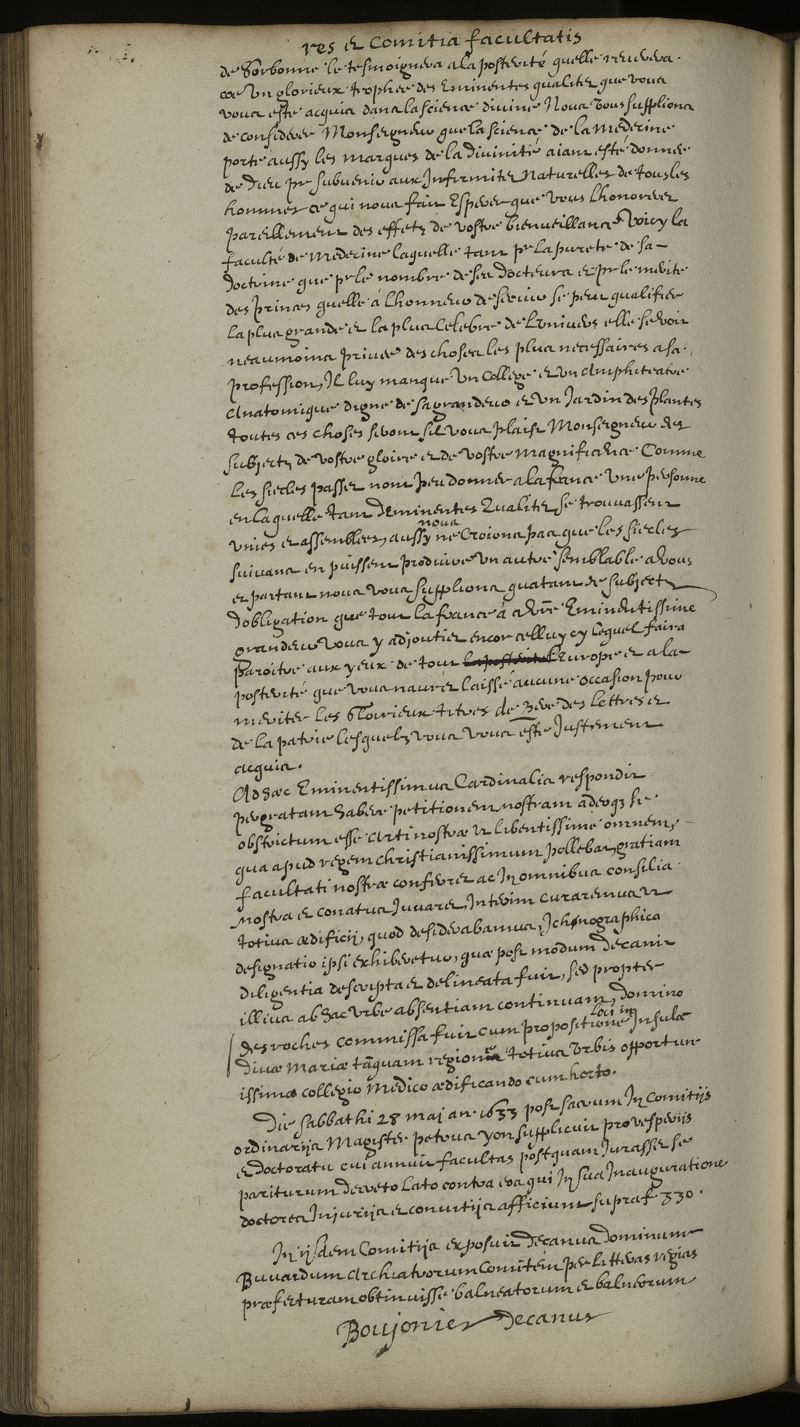 res et Comitia facultatis
de Sorbonne le tesmoignera a la posterité quelle reuevera
coe Un glorieux trophee des Eminentes qualitez que vous
vous este acquis dans la science divine Nous Vous supplions
de considerer Monseigneur que la science de la Medecine
porte aussy les marques de la divinité aiant esté donnee
de Dieu pr subvenir aux Infirmitez Naturelles de tous les
hommes ce qui nous fait Esperer que vous Lhonorerez
pareillement des effets de vostre bienveillance Voicy la
faculté de Medecine laquelle tant pr la purete de sa
doctrine que pr le nombre de ses docteurs et pr le merite
des princes quelle a Lhonneur de servir se peut qualifier
La plus grande et la plus Celebre de Lunivers elle se voit
neaumoins privee des choses les plus necessaires a sa
profession, Il luy manque Un College et un Amphiteatre
Anatomique digne de sa grandeur et un Jardin des plantes
toutes ces choses seront sil vous plaist Monseigneur des
subiectz de vostre gloire et de vostre magnificence Comme
Les siecles passez nont peu donner a la france Une personne
en laquelle tant Deminentes Qualitez se trouvassent
unies et assemblees, aussy nous ne Croions pas que les siecles
suivans en puissent produire un autre semblable a vous
et partant nous vous supplions quatant de subiectz
dobligation que tout la france a a vre Eminentissime
grandeur Vous y adjoutiez encor celluy cy lequel faira
paroitre aux yeux de tout la posterité Europe et a la
posterité que vous naurez laissé aucune occasion pour
meriter les Glorieux titres de pere des lettres et
de la patrie lesquelz vous vous este Justement
acquis.
Ad haec Eminentissimus Cardinalis respondit
pergratam habere petitionem nostram adeoq; se
obstrictum esse Arti nostrae ut libentissime omnem,
qua apud regem christianissimum pollebat, gratiam
facultati nostrae conferret ac In omnibus consilia
nostra et conatus Juvaret, Interim curaremus ut
totius aedificij, quod desiderabamus, Ichonographica
designatio ipsi exhiberetur, quae post modum decani
diligentia descripta et delineata fuit, sed propter
illius ab hac urbe absentiam continuam, domino
des roches commissa fuit cum propositione loci in Insulae
Divae Mariae tanquam regionis totius Urbis opportun
issimae collegio Medico aedificando cum horto.
Die sabbathi 28 maj an. 1633 post sacrum In Comitijs
ordinarijs Magister petrus yon supplicuit pro vesperijs
et doctoratu cui annuit facultas postquam Jurasset se
pariturum decreto Lato contra eos qui In sua Inauguratione
doctores Injurijs et convitijs afficiunt supra f 330.
In ijsdem Comitijs exposuit decanus dominum
Buvardum Archiatrorum Comitem per litteras regias
praefecturam obtinuisse balneatorum et balneorum
Boujonier Decanus